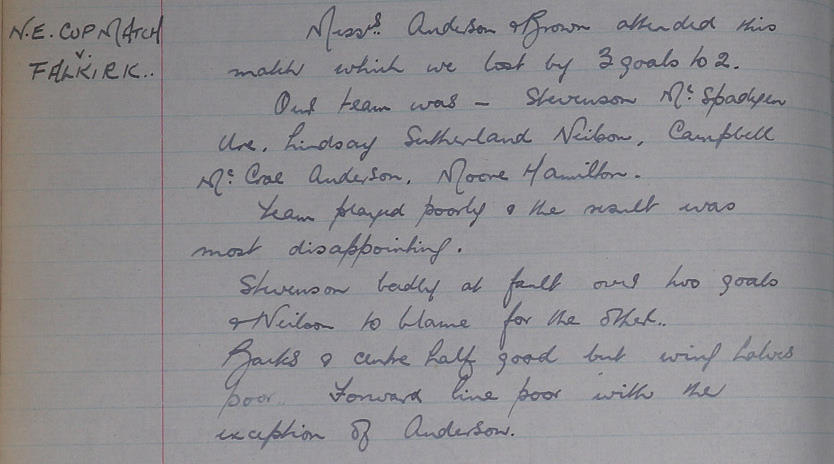 N.E. CUP MATCH
v.
FALKIRK..
Messrs. Anderson & Brown attended this
match which we lost by 3 goals to 2.
Our team was – Stevenson McSpadyen
Ure, Lindsay Sutherland Neilson, Campbell
McCrae Anderson, Moore Hamilton.
Team played poorly & the result was
most disappointing.
Stevenson badly at fault over two goals
& Neilson to blame for the other..
Backs & centre half good but wing halves
poor.. Forward line poor with the
exception of Anderson.